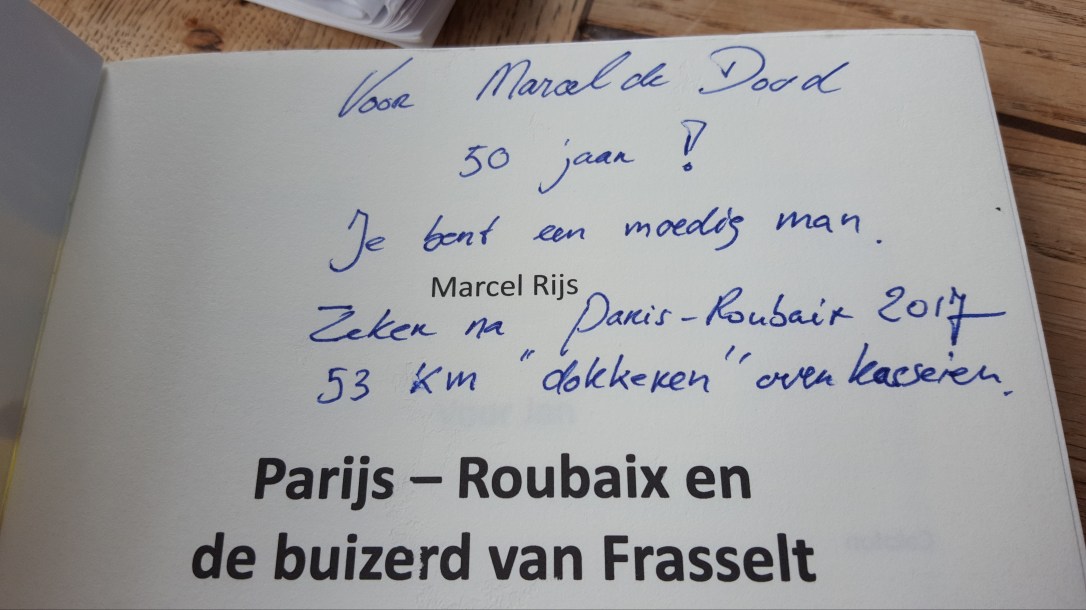 Voor Marcel de Dood
50 jaar !
Je bent een moedig man.
Marcel Rijs
Zeker na Paris-Roubaix 2017
53 km "dokkeren" over kasseien.
Parijs – Roubaix en
de buizerd van Frasselt